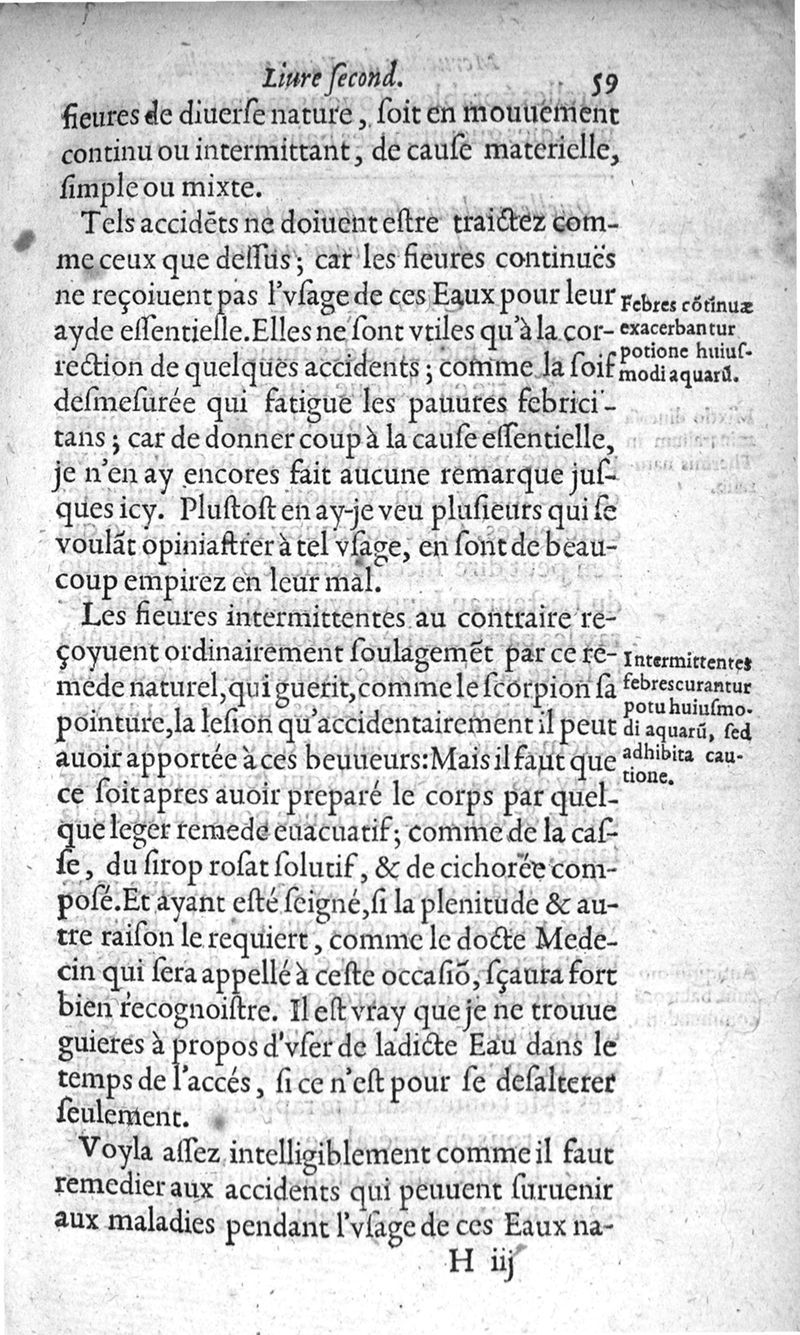 Liure ſecond. 59
fieures de diuerſe nature, ſoit en mouuement
continu ou intermittant, de cauſe materielle,
ſimple ou mixte.
Tels accidẽts ne doiuent eſtre traictez com-
me ceux que deſſus; car les fieures continuës
ne reçoiuent pas l'vſage de ces Eaux pour leur
ayde eſſentielle. Elles ne ſont vtiles qu'à la cor-
rection de quelques accidents; comme la ſoif
deſmeſurée qui fatigue les pauures febrici-
tans; car de donner coup à la cauſe eſſentielle,
je n'en ay encores fait aucune remarque juſ-
ques icy. Pluſtoſt en ay-je veu pluſieurs qui ſe
voulãt opiniaſtrer à tel vſage, en ſont de beau-
coup empirez en leur mal.
Febres cõtinuæ
exacerbantur
potione huiuſ-
modi aquarũ.
Les fieures intermittentes au contraire re-
çoyuent ordinairement ſoulagemẽt par ce re-
mede naturel, qui guerit, comme le ſcorpion ſa
pointure, la leſion qu'accidentairement il peut
auoir apportée à ces beuueurs: Mais il faut que
ce ſoit apres auoir preparé le corps par quel-
que leger remede euacuatif; comme de la caſ-
ſe, du ſirop roſat ſolutif, & de cichorée com-
poſé. Et ayant eſté ſeigné, ſi la plenitude & au-
tre raiſon le requiert, comme le docte Mede-
cin qui ſera appellé à ceſte occaſiõ, ſçaura fort
bien recognoiſtre. Il eſt vray que je ne trouue
guieres à propos d'vſer de ladicte Eau dans le
temps de l'accés, ſi ce n'eſt pour ſe deſalterer
ſeulement.
Intermittentes
febres curantur
potu huiuſmo-
di aquarũ, ſed
adhibita cau-
tione.
Voyla aſſez intelligiblement comme il faut
remedier aux accidents qui peuuent ſuruenir
aux maladies pendant l'vſage de ces Eaux na-
H iij